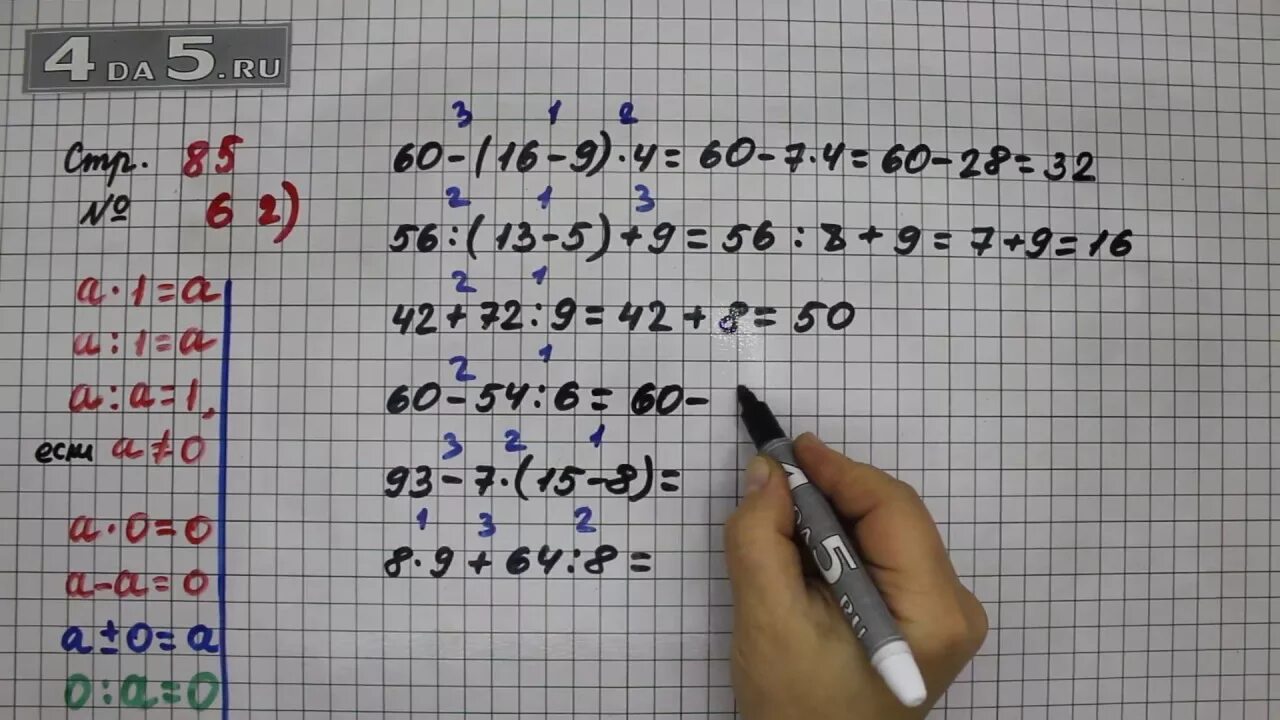 4DA5.RU
Стр. 85
№ 6 2)
a·1=a
a:1=a
a:a=1,
если a≠0
a·0=0
a-a=0
a±0=a
0:a=0
3 1 2
60-(16-9)·4=60-7·4=60-28=32
2 1 3
56:(13-5)+9=56:8+9=7+9=16
2 1
42+72:9=42+8=50
2 1
60-54:6=60-
3 2 1
93-7·(15-8)=
1 3 2
8·9+64:8=